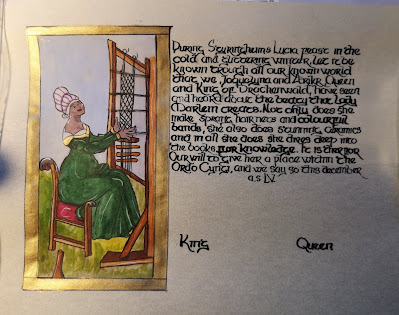 During Styringheims Lucia feast in the
cold and glittering winter. Let it be
known trough all our known world
that we, Jaquelyna and Avikr Queen
and King of Drachenwald, have seen
and heard about the beauty that Lady
Marlein creates. Not only does she
make sprang hairnets and colourful
bands, she also does stunning ceramics
and in all she does she dives deep into
the books for knowledge. It is therfor
Our will to give her a place within the
Ordo Cyngi, and we say so this december
a.s LV
King Queen